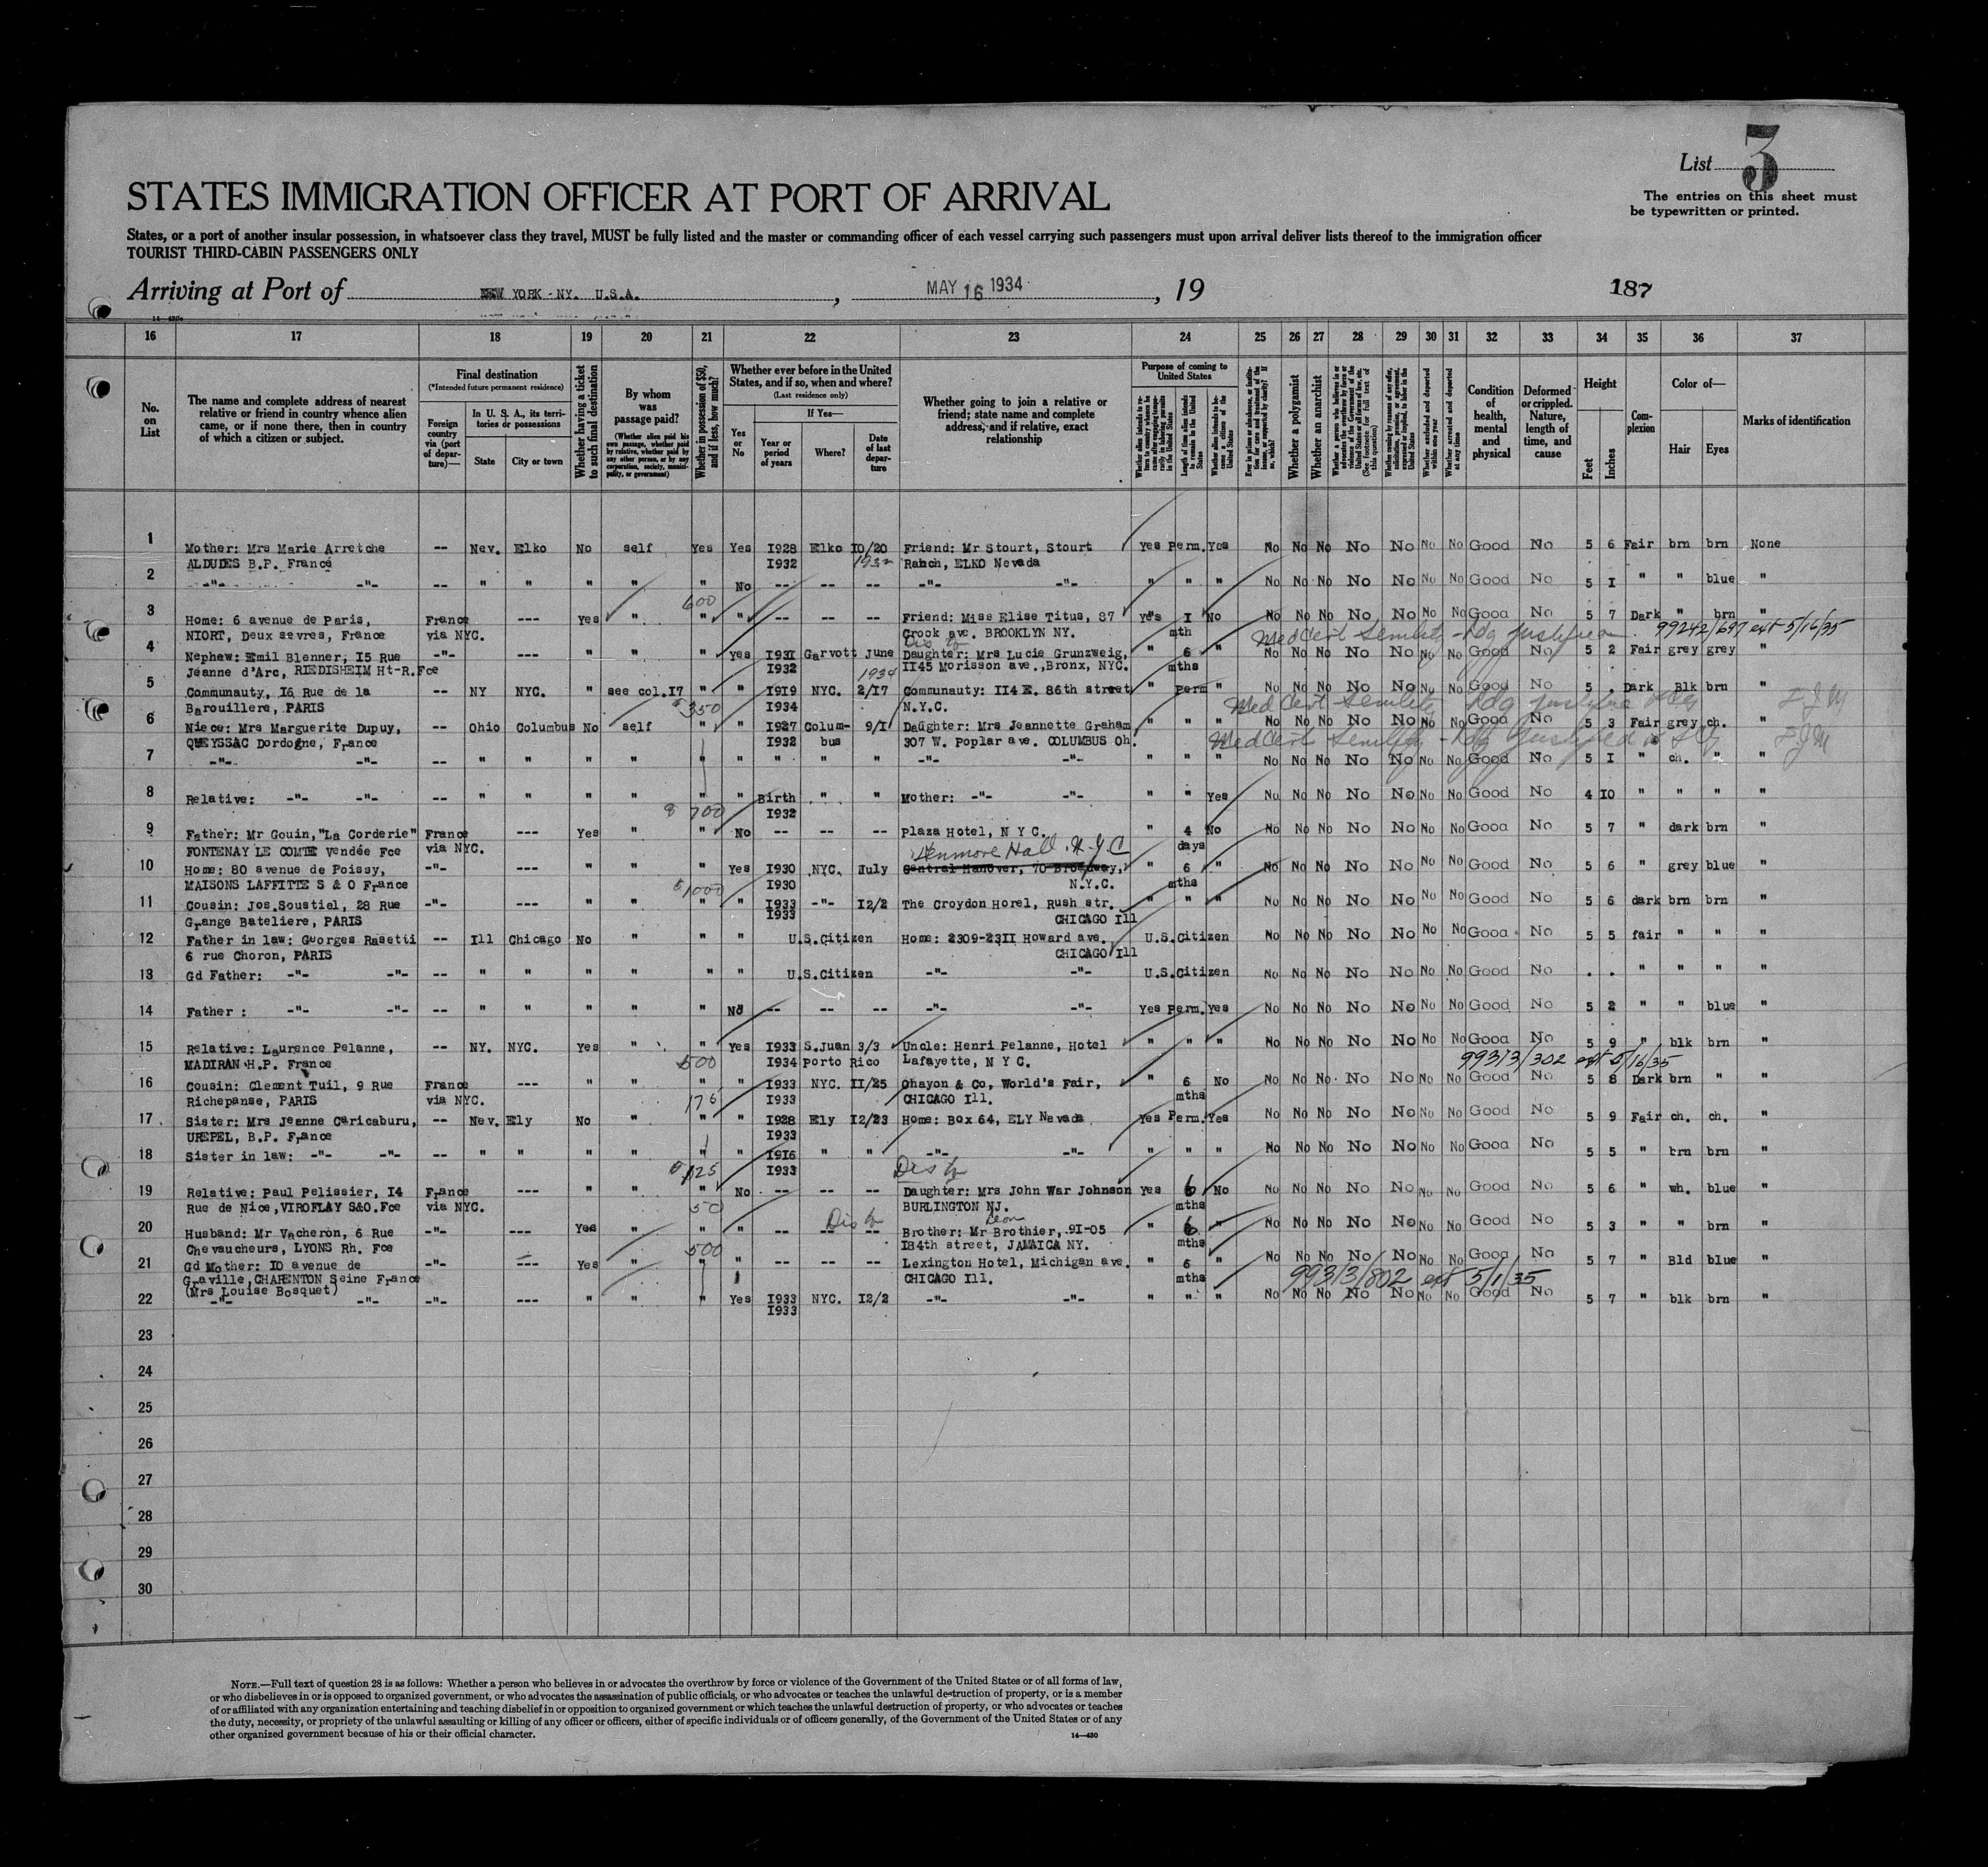 List 3
The entries on this sheet must
be typewritten or printed.
STATES IMMIGRATION OFFICER AT PORT OF ARRIVAL
States, or a port of another insular possession, in whatsoever class they travel, MUST be fully listed and the master or commanding officer of each vessel carrying such passengers must upon arrival deliver lists thereof to the immigration officer
TOURIST THIRD-CABIN PASSENGERS ONLY
Arriving at Port of NEW YORK - NY. U.S.A. , MAY 16 1934 , 19 187
16 17 18 19 20 21 22 23 24 25 26 27 28 29 30 31 32 33 34 35 36 37
No. on List
The name and complete address of nearest relative or friend in country whence alien came, or if none there, then in country of which a citizen or subject.
Final destination
(*Intended future permanent residence)
Foreign country via (port of departure)—
In U. S. A., its territories or possessions
State
City or town
Whether having a ticket to such final destination
By whom was passage paid?
(Whether alien paid his own passage, whether paid by relative, whether paid by any other person, or by any corporation, society, municipality, or government)
Whether in possession of $50, and if less, how much?
Whether ever before in the United States, and if so, when and where?
(Last residence only)
Yes or No
If Yes—
Year or period of years
Where?
Date of last departure
Whether going to join a relative or friend; state name and complete address, and if relative, exact relationship
Purpose of coming to United States
Length of time alien intends to remain in the United States
Whether alien intends to become a citizen of the United States
Whether a polygamist
Whether an anarchist
Whether excluded and deported within one year
Whether arrested and deported at any time
Condition of health, mental and physical
Deformed or crippled. Nature, length of time, and cause
Height
Feet
Inches
Complexion
Color of—
Hair
Eyes
Marks of identification
1 Mother: Mrs Marie Arretche -- Nev. Elko No self Yes Yes I928 Elko IO/20 Friend: Mr Stourt, Stourt Yes Perm. Yes No No No No No No No Good No 5 6 Fair brn brn None
ALDUDES B.P. France I932 1932 Ranch, ELKO Nevada
2 -"- -"- -- " " " " " No -- -- -- -"- -"- " " " No No No No No No No Good No 5 I " " blue "
600
3 Home: 6 avenue de Paris, France --- Yes " " " -- -- -- Friend: Miss Elise Titus, 87 yes I No No No No No No No No Good No 5 7 Dark " brn "
NIORT, Deux sevres, France via NYC. Crook ave. BROOKLYN NY. mth 99242/697 ext 5/16/35
Med Cert Senility
4 Nephew: Emil Blenner, I5 Rue -"- --- " " " Yes I93I Garvott June Daughter: Mrs Lucie Grunzweig, " 6 " No No No No No No No Good No 5 2 Fair grey grey "
Jeanne d'Arc, RIEDISHEIM Ht-R.Fce I932 1934 II45 Morisson ave.,Bronx, NYC. mths
5 Communauty, I6 Rue de la -- NY NYC. " see col.I7 " " I9I9 NYC. 2/I7 Communauty: II4 E. 86th street " Perm " No No No No No No No Good No 5 . Dark Blk brn "
Barouillere, PARIS $350 I934 N.Y.C. Med Cert Senility
6 Niece: Mrs Marguerite Dupuy, -- Ohio Columbus No self " " I927 Colum- 9/I Daughter: Mrs Jeannette Graham " " " No No No No No No No Good No 5 3 Fair grey ch. "
QUEYSSAC Dordogne, France I932 bus 307 W. Poplar ave. COLUMBUS Oh. Med Cert Senility
7 -"- -"- -- " " " " " " " " " -"- -"- " " " No No No No No No No Good No 5 I " ch. " "
8 Relative: -"- -"- -- " " " " " " Birth " " Mother: -"- -"- " " Yes No No No No No No No Good No 4 IO " " " "
$ 700 I932
9 Father: Mr Gouin,"La Corderie" France --- Yes " " No -- -- -- Plaza Hotel, N Y C. " 4 No No No No No No No No Good No 5 7 " dark brn "
FONTENAY LE COMTE Vendée Fce via NYC. days
Kenmore Hall. N.Y.C
10 Home: 80 avenue de Poissy, -"- --- " " " Yes I930 NYC. July Central Hanover, 70 Broadway, " 6 " No No No No No No No Good No 5 6 " grey blue "
MAISONS LAFFITTE S & O France $1000 I930 N.Y.C. mths
11 Cousin: Jos.Soustiel, 28 Rue -"- --- " " " " I933 -"- I2/2 The Croydon Horel, Rush str. " " " No No No No No No No Good No 5 6 dark brn brn "
Grange Bateliere, PARIS I933 CHICAGO Ill
12 Father in law: Georges Rasetti -- Ill Chicago No " " " U.S.Citizen Home: 2309-23II Howard ave. U.S.Citizen No No No No No No No Good No 5 5 fair " " "
6 rue Choron, PARIS CHICAGO Ill
13 Gd Father: -"- -"- -- " " " " " " U.S.Citizen -"- -"- U.S.Citizen No No No No No No No Good No . . " " " "
14 Father : -"- -"- -- " " " " " No -- -- -- -"- -"- Yes Perm. Yes No No No No No No No Good No 5 2 " " blue "
15 Relative: Laurence Pelanne, -- NY. NYC. Yes " " Yes I933 S.Juan 3/3 Uncle: Henri Pelanne, Hotel " " " No No No No No No No Good No 5 9 " blk brn "
MADIRAN H.P. France 500 I934 Porto Rico Lafayette, N Y C. 99313/302 ext 5/16/35
16 Cousin: Clement Tuil, 9 Rue France --- " " " " I933 NYC. II/25 Ohayon & Co, World's Fair, " 6 No No No No No No No No Good No 5 8 Dark brn " "
Richepanse, PARIS via NYC. 176 I933 CHICAGO Ill. mths
17 Sister: Mrs Jeanne Caricaburu, -- Nev. Ely No " " " I928 Ely I2/23 Home: Box 64, ELY Nevada Yes Perm. Yes No No No No No No No Good No 5 9 Fair ch. ch. "
UREPEL, B.P. France I933
18 Sister in law: -"- -"- -- " " " " " " I9I6 " " -"- -"- " " " No No No No No No No Good No 5 5 " brn brn "
$125 I933
19 Relative: Paul Pelissier, I4 France --- " " " No -- -- -- Daughter: Mrs John War Johnson Yes 6 No No No No No No No No Good No 5 6 " wh. blue "
Rue de Nice,VIROFLAY S&O.Fce via NYC. 50 BURLINGTON NJ. mths
Leon
20 Husband: Mr Vacheron, 6 Rue -"- --- Yes " " " -- -- -- Brother: Mr Brothier, 9I-05 " 6 " No No No No No No No Good No 5 3 " " brn "
Chevaucheurs, LYONS Rh. Fce 500 I84th street, JAMAICA NY. mths
21 Gd Mother: IO avenue de -"- --- Yes " " " -- -- -- Lexington Hotel, Michigan ave. " 6 " No No No No No No No Good No 5 7 Bld blue "
Graville,CHARENTON Seine France CHICAGO Ill. mths 99313/802 ext 5/1/35
(Mrs Louise Bosquet)
22 -"- -"- -"- --- " " " Yes I933 NYC. I2/2 -"- -"- " " " No No No No No No No Good No 5 7 " blk brn "
I933
23
24
25
26
27
28
29
30
NOTE.—Full text of question 28 is as follows: Whether a person who believes in or advocates the overthrow by force or violence of the Government of the United States or of all forms of law,
or who disbelieves in or is opposed to organized government, or who advocates the assassination of public officials, or who advocates or teaches the unlawful destruction of property, or is a member
of or affiliated with any organization entertaining and teaching disbelief in or opposition to organized government or which teaches the unlawful destruction of property, or who advocates or teaches
the duty, necessity, or propriety of the unlawful assaulting or killing of any officer or officers, either of specific individuals or of officers generally, of the Government of the United States or of any
other organized government because of his or their official character.
14—430